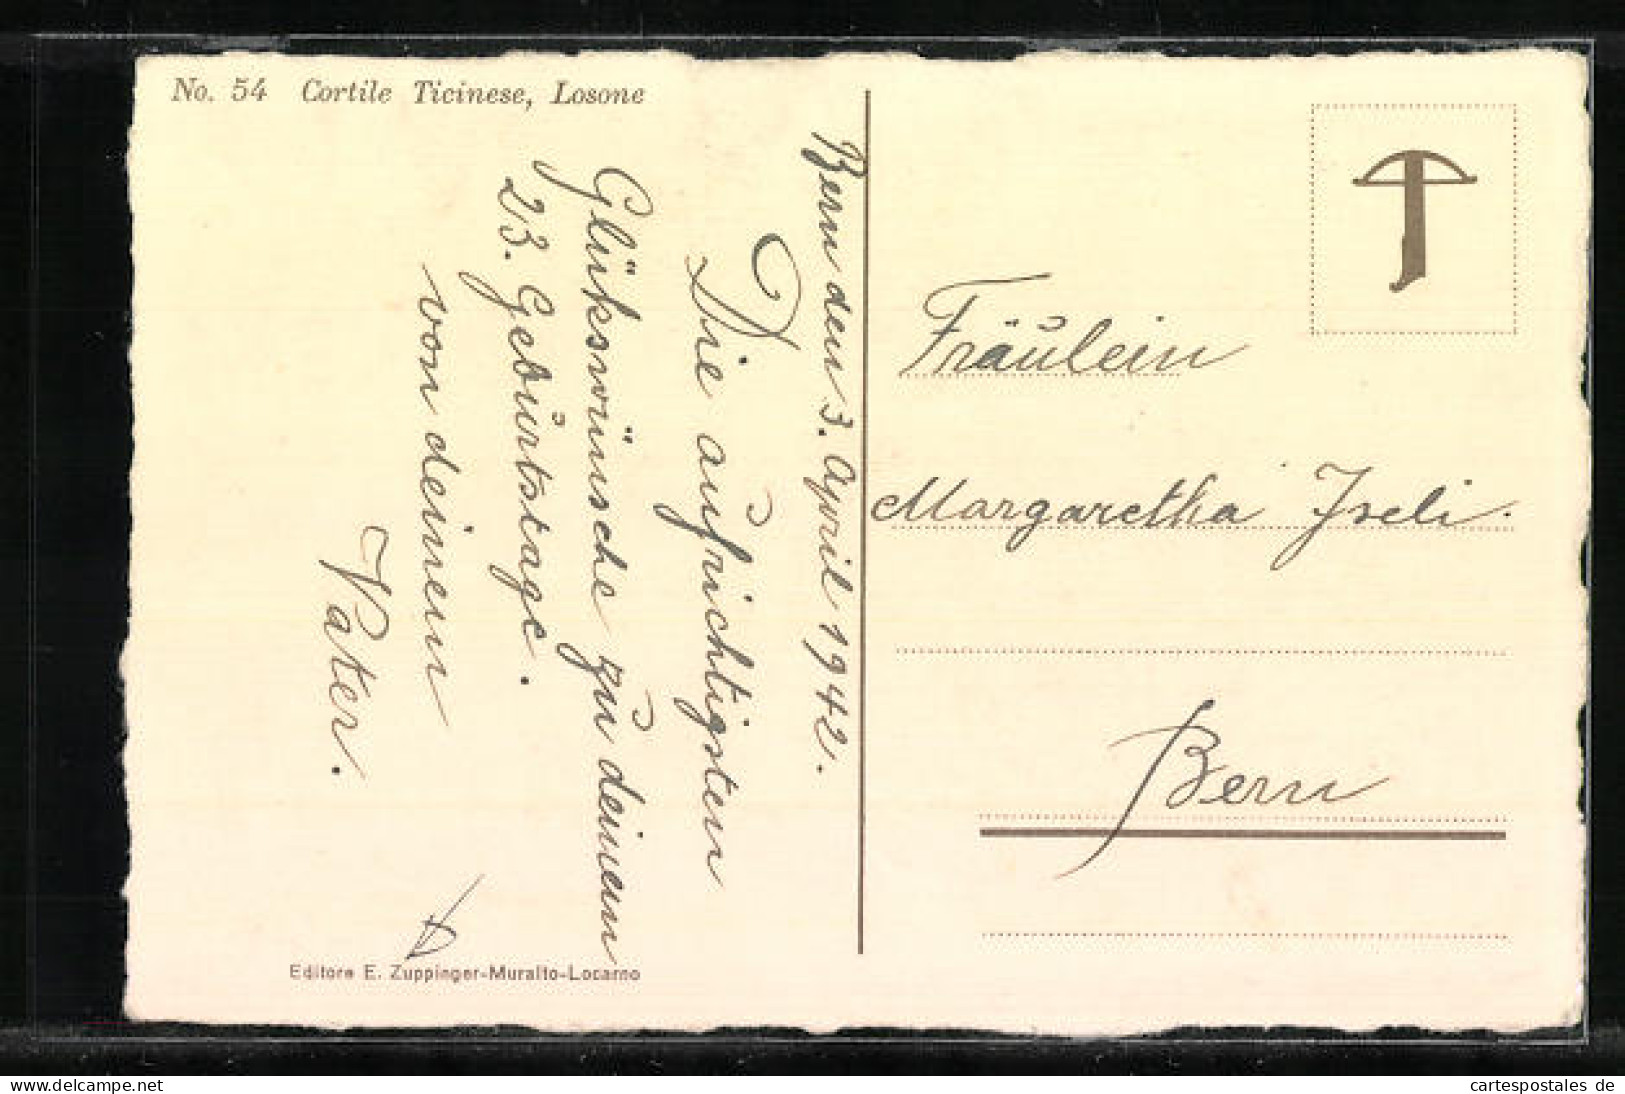 No. 54 Cortile Ticinese, Losone
Bern den 3. April 1942.
Die aufrichtigsten
Glükswünsche zu deinem
23. Geburtstage.
von deinem
Vater.
Editore E. Zuppinger-Muralto-Locarno
Fräulein
Margaretha Iseli.
Bern
www.delcampe.net
cartespostales de